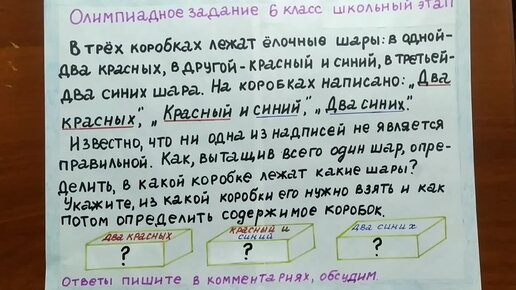 Олимпиадное задание 6 класс школьный этап
В трёх коробках лежат ёлочные шары: в одной-
два красных, в другой-красный и синий, в третьей-
два синих шара. На коробках написано: „Два
красных", „Красный и синий", „Два синих".
Известно, что ни одна из надписей не является
правильной. Как, вытащив всего один шар, опре-
делить, в какой коробке лежат какие шары?
Укажите, из какой коробки его нужно взять и как
потом определить содержимое коробок.
два красных красный и синий два синих
? ? ?
Ответы пишите в комментариях, обсудим.